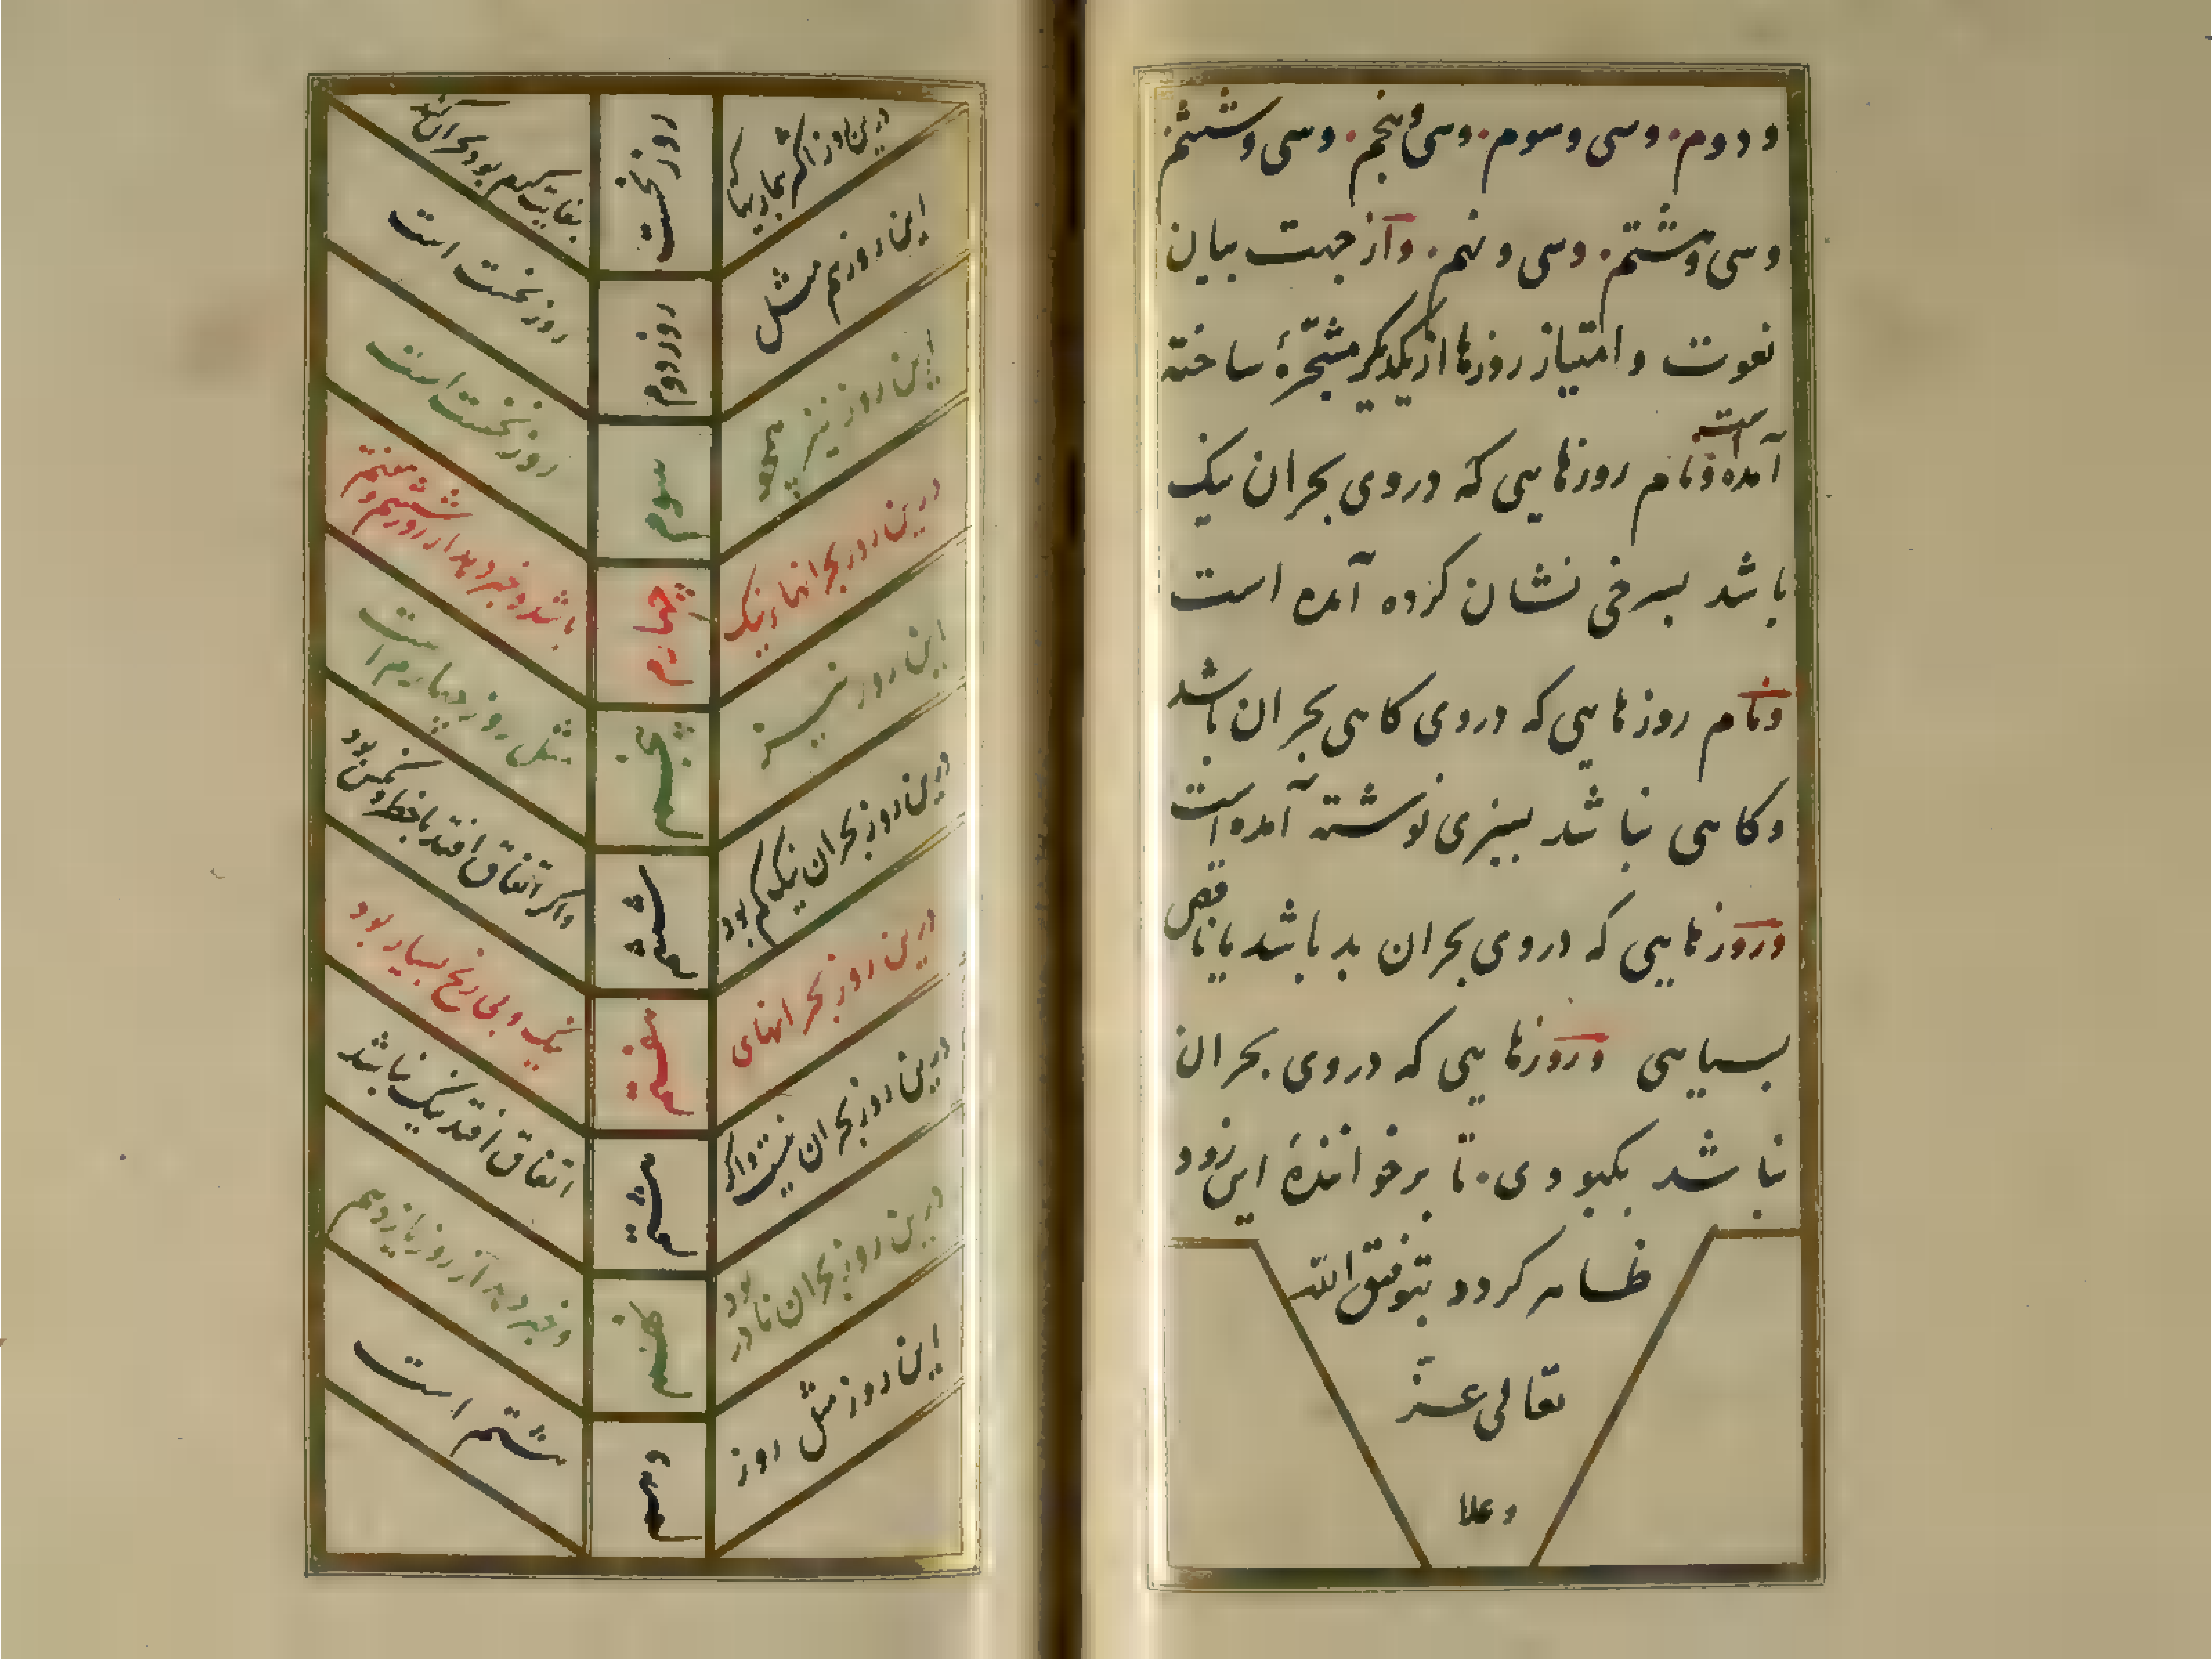 و دوم. و سی و سوم. و سی و پنجم. و سی و ششم
و سی و هشتم. و سی و نهم. و از جهت بیان
نعوت و امتیاز روزها از یکدیگر مشجّرهٔ ساخته
آمده است و نام روزهایی که در وی بحران نیک
باشد بسرخی نشان کرده آمده است
و نام روزهایی که در وی کاهی بحران باشد
و کاهی نباشد بسبزی نوشته آمده است
و روزهایی که در وی بحران بد باشد یا ناقص
بسیاهی و روزهایی که در وی بحران
نباشد بکبودی. تا بر خوانندهٔ این زود
ظاهر کردد بتوفیق الله
تعالی عز
و علا
درین روز اکثر بیماریها
روز نخست
بغایت کم بود بحران
این روز هم مثل
روز دوم
روز نخست است
این روز نیز همچو
سوم
روز نخست است
درین روز بحرانهاء نیک
چهارم
باشد و خبر دهد از روز ششم و هفتم
این روز نیز
پنجم
مثل روز چهارم است
درین روز بحران نیک کم بود
ششم
و اکر اتفاق افتد با خطر و سهمکین بود
درین روز بحرانهای
هفتم
نیک و بی رنج بسیار بود
درین روز بحران نیست و اکر
هشتم
اتفاق افتد نیک نباشد
درین روز بحران نادر بود
نهم
و خبر دهد از روز یازدهم
این روز مثل روز
دهم
هشتم است